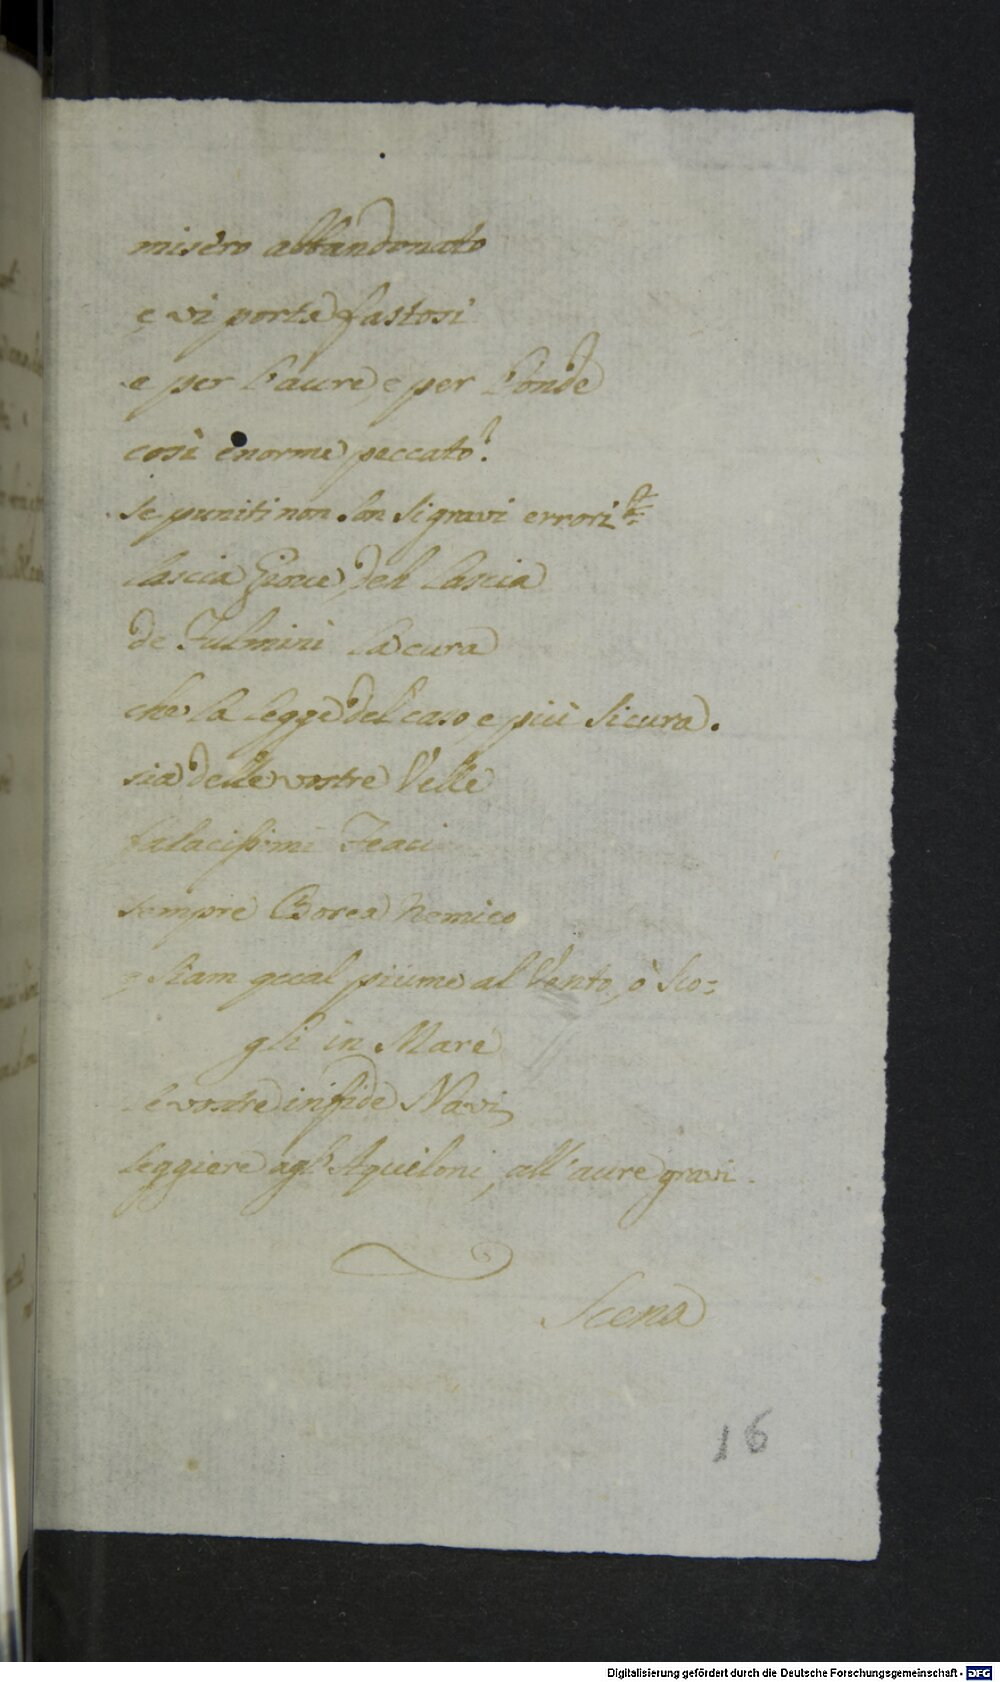 misero abbandonato
e vi porta fastosi
e per l'aure, e per l'onde
così enorme peccato?
se puniti non son si gravi errori
lascia Gioue, deh lascia
de Fulmini la cura
che la legge del caso, e più sicura.
sia delle vostre Velle
falacissimi Feaci
sempre Borea nemico
e siam qual piume al Vento, ò sco=
gli in Mare
le vostre infide Navi,
leggiere agl'Aquiloni, all'aure gravi.
Scena
16
Digitalisierung gefördert durch die Deutsche Forschungsgemeinschaft - DFG